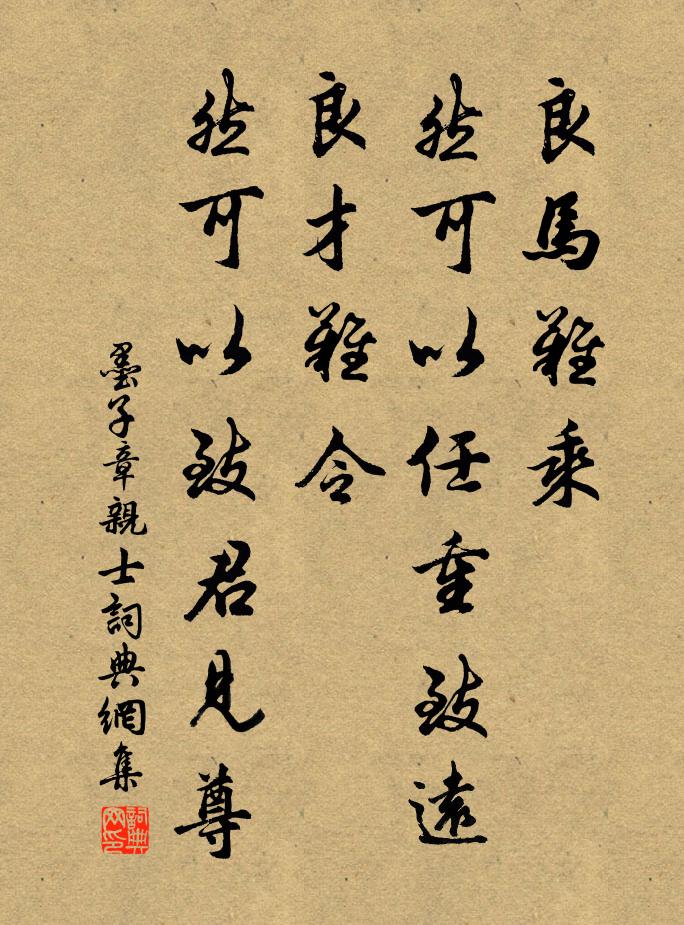 良馬難乘
然可以任重致遠
良才難令
然可以致君見尊
墨子章親士詞典網集
詞典網印